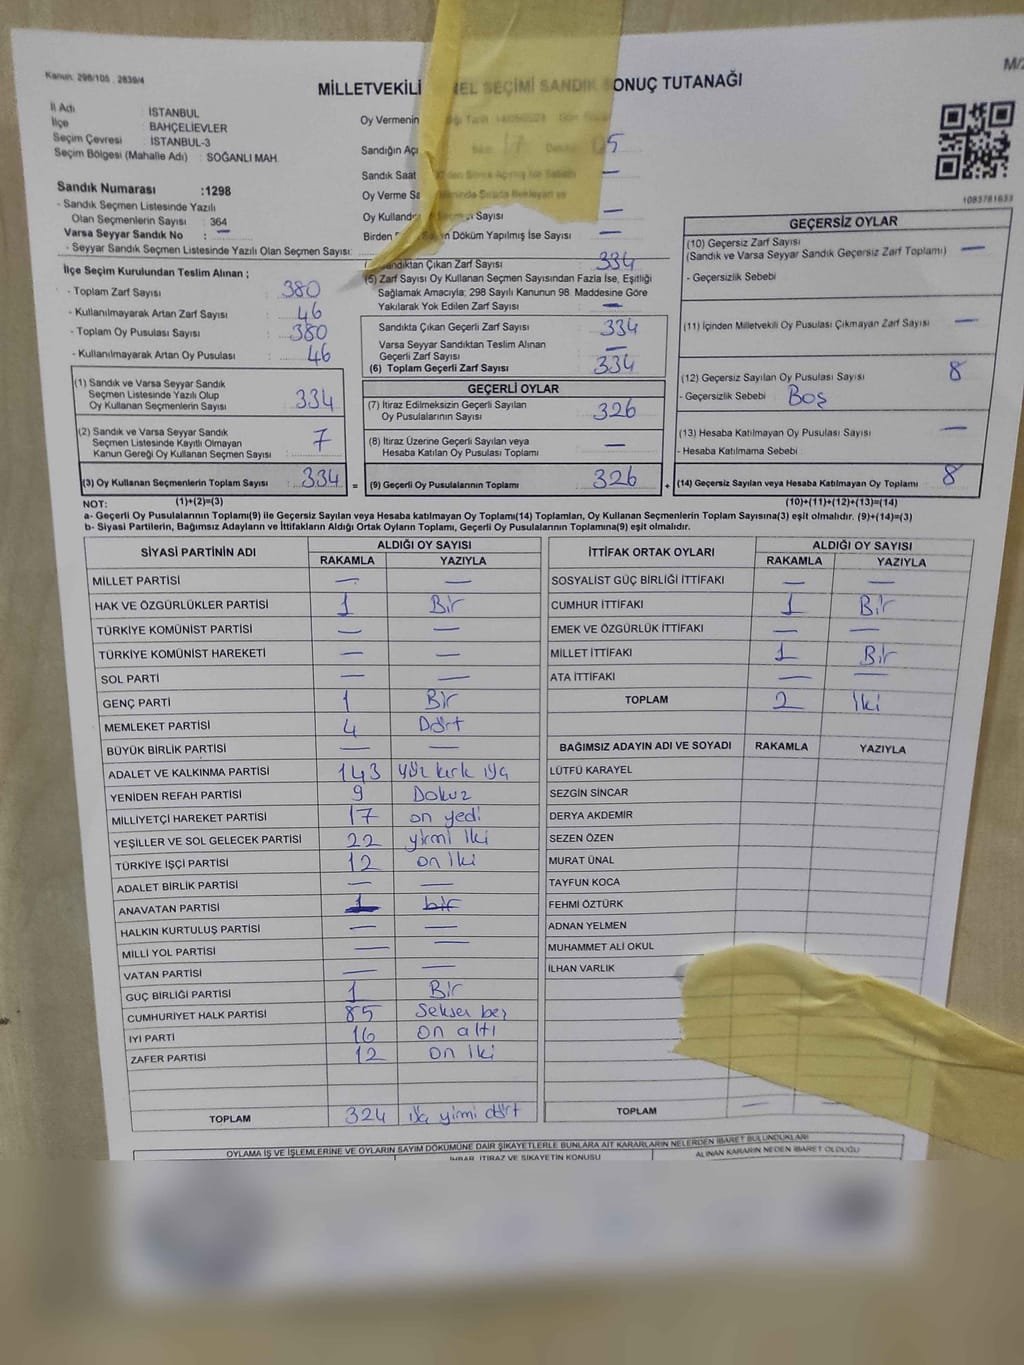 Kanun: 298/105 , 2839/4
M/2
MİLLETVEKİLİ GENEL SEÇİMİ SANDIK SONUÇ TUTANAĞI
İl Adı İSTANBUL
İlçe BAHÇELİEVLER
Seçim Çevresi : İSTANBUL-3
Seçim Bölgesi (Mahalle Adı) : SOĞANLI MAH.
Sandık Numarası :1298
- Sandık Seçmen Listesinde Yazılı
Olan Seçmenlerin Sayısı : 364
Varsa Seyyar Sandık No : —
- Seyyar Sandık Seçmen Listesinde Yazılı Olan Seçmen Sayısı:
İlçe Seçim Kurulundan Teslim Alınan ;
- Toplam Zarf Sayısı : 380
- Kullanılmayarak Artan Zarf Sayısı : 46
- Toplam Oy Pusulası Sayısı : 380
- Kullanılmayarak Artan Oy Pusulası : 46
(1) Sandık ve Varsa Seyyar Sandık
Seçmen Listesinde Yazılı Olup
Oy Kullanan Seçmenlerin Sayısı 334
(2) Sandık ve Varsa Seyyar Sandık
Seçmen Listesinde Kayıtlı Olmayan
Kanun Gereği Oy Kullanan Seçmen Sayısı : 7
(3) Oy Kullanan Seçmenlerin Toplam Sayısı : 334 =
Oy Vermenin
Sandığın Açı 17 05
Sandık Saat —
Oy Verme Sa
Oy Kullanan Seçmen Sayısı —
Birden Döküm Yapılmış İse Sayısı —
Sandıktan Çıkan Zarf Sayısı 334
(5) Zarf Sayısı Oy Kullanan Seçmen Sayısından Fazla İse, Eşitliği
Sağlamak Amacıyla; 298 Sayılı Kanunun 98. Maddesine Göre
Yakılarak Yok Edilen Zarf Sayısı : —
Sandıkta Çıkan Geçerli Zarf Sayısı 334
Varsa Seyyar Sandıktan Teslim Alınan
Geçerli Zarf Sayısı —
(6) Toplam Geçerli Zarf Sayısı : 334
GEÇERLİ OYLAR
(7) İtiraz Edilmeksizin Geçerli Sayılan
Oy Pusulalarının Sayısı : 326
(8) İtiraz Üzerine Geçerli Sayılan veya
Hesaba Katılan Oy Pusulası Toplamı : —
(9) Geçerli Oy Pusulalarının Toplamı : 326 +
1083781633
GEÇERSİZ OYLAR
(10) Geçersiz Zarf Sayısı
(Sandık ve Varsa Seyyar Sandık Geçersiz Zarf Toplamı) : —
- Geçersizlik Sebebi :
(11) İçinden Milletvekili Oy Pusulası Çıkmayan Zarf Sayısı : —
(12) Geçersiz Sayılan Oy Pusulası Sayısı : 8
- Geçersizlik Sebebi : Boş
(13) Hesaba Katılmayan Oy Pusulası Sayısı : —
- Hesaba Katılmama Sebebi :
(14) Geçersiz Sayılan veya Hesaba Katılmayan Oy Toplamı : 8
NOT: (1)+(2)=(3) (10)+(11)+(12)+(13)=(14)
a- Geçerli Oy Pusulalarının Toplamı(9) ile Geçersiz Sayılan veya Hesaba katılmayan Oy Toplamı(14) Toplamları, Oy Kullanan Seçmenlerin Toplam Sayısına(3) eşit olmalıdır. (9)+(14)=(3)
b- Siyasi Partilerin, Bağımsız Adayların ve İttifakların Aldığı Ortak Oyların Toplamı, Geçerli Oy Pusulalarının Toplamına(9) eşit olmalıdır.
SİYASİ PARTİNİN ADI ALDIĞI OY SAYISI
RAKAMLA YAZIYLA
MİLLET PARTİSİ — —
HAK VE ÖZGÜRLÜKLER PARTİSİ 1 Bir
TÜRKİYE KOMÜNİST PARTİSİ — —
TÜRKİYE KOMÜNİST HAREKETİ — —
SOL PARTİ — —
GENÇ PARTİ 1 Bir
MEMLEKET PARTİSİ 4 Dört
BÜYÜK BİRLİK PARTİSİ — —
ADALET VE KALKINMA PARTİSİ 143 yüz kırk üç
YENİDEN REFAH PARTİSİ 9 Dokuz
MİLLİYETÇİ HAREKET PARTİSİ 17 on yedi
YEŞİLLER VE SOL GELECEK PARTİSİ 22 yirmi iki
TÜRKİYE İŞÇİ PARTİSİ 12 on iki
ADALET BİRLİK PARTİSİ — —
ANAVATAN PARTİSİ 1 bir
HALKIN KURTULUŞ PARTİSİ — —
MİLLİ YOL PARTİSİ — —
VATAN PARTİSİ — —
GÜÇ BİRLİĞİ PARTİSİ 1 Bir
CUMHURİYET HALK PARTİSİ 85 Seksen beş
İYİ PARTİ 16 on altı
ZAFER PARTİSİ 12 on iki
TOPLAM 324 üç yirmi dört
İTTİFAK ORTAK OYLARI ALDIĞI OY SAYISI
RAKAMLA YAZIYLA
SOSYALİST GÜÇ BİRLİĞİ İTTİFAKI — —
CUMHUR İTTİFAKI 1 Bir
EMEK VE ÖZGÜRLÜK İTTİFAKI — —
MİLLET İTTİFAKI 1 Bir
ATA İTTİFAKI — —
TOPLAM 2 İki
BAĞIMSIZ ADAYIN ADI VE SOYADI RAKAMLA YAZIYLA
LÜTFÜ KARAYEL
SEZGİN SİNCAR
DERYA AKDEMİR
SEZEN ÖZEN
MURAT ÜNAL
TAYFUN KOCA
FEHMİ ÖZTÜRK
ADNAN YELMEN
MUHAMMET ALİ OKUL
İLHAN VARLIK
TOPLAM — —
OYLAMA İŞ VE İŞLEMLERİNE VE OYLARIN SAYIM DÖKÜMÜNE DAİR ŞİKAYETLERLE BUNLARA AİT KARARLARIN NELERDEN İBARET BULUNDUKLARI
İHBAR, İTİRAZ VE ŞİKAYETİN KONUSU ALINAN KARARIN NEDEN İBARET OLDUĞU